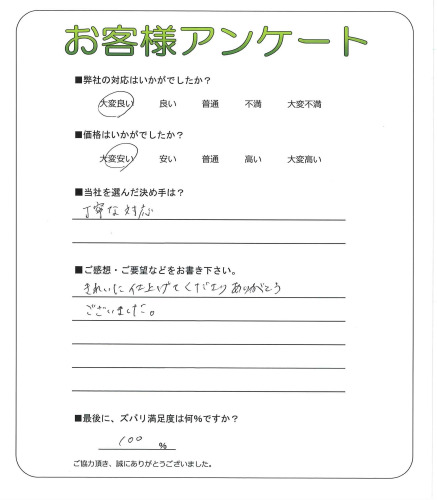 お客様アンケート
■弊社の対応はいかがでしたか？
大変良い 良い 普通 不満 大変不満
■価格はいかがでしたか？
大変安い 安い 普通 高い 大変高い
■当社を選んだ決め手は？
丁寧な対応
■ご感想・ご要望などをお書き下さい。
きれいに仕上げてくださりありがとう
ございました。
■最後に、ズバリ満足度は何%ですか？
100 %
ご協力頂き、誠にありがとうございました。